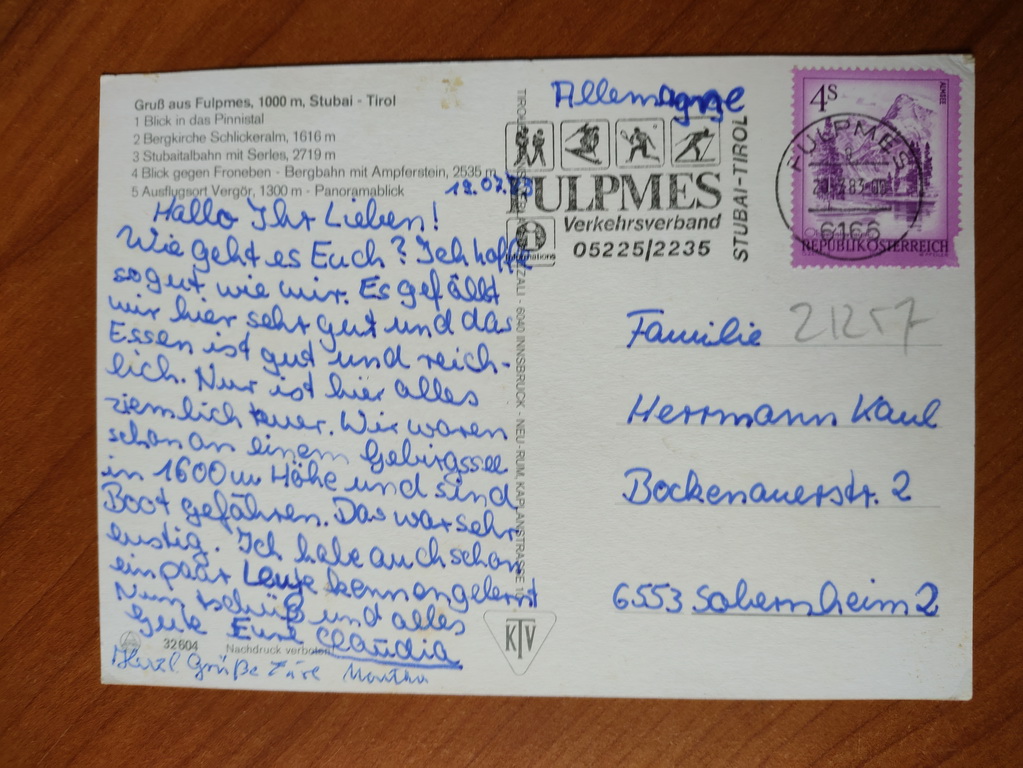 Gruß aus Fulpmes, 1000 m, Stubai - Tirol
1 Blick in das Pinnistal
2 Bergkirche Schlickeralm, 1616 m
3 Stubaitalbahn mit Serles, 2719 m
4 Blick gegen Froneben - Bergbahn mit Ampferstein, 2535 m
5 Ausflugsort Vergör, 1300 m - Panoramablick
Hallo Ihr Lieben!
Wie geht es Euch? Ich hoffe
so gut wie mir. Es gefällt
mir hier sehr gut und das
Essen ist gut und reich-
lich. Nur ist hier alles
ziemlich teuer. Wir waren
schon an einem Gebirgssee
in 1600 m Höhe und sind
Boot gefahren. Das war sehr
lustig. Ich habe auch schon
ein paar Leute kennengelernt
Nun tschüß und alles
Gute Eure Claudia
Herzl Grüße
32604
Nachdruck verboten
6040 INNSBRUCK - NEU-RUM, KAPLANSTRASSE
KTV
Allemagne
FULPMES
Verkehrsverband
05225/2235
STUBAI-TIROL
4S
ALMSEE
REPUBLIK ÖSTERREICH
FULPMES
6166
Familie
21257
Herrmann Kaul
Bockenauerstr. 2
6553 Sobernheim 2